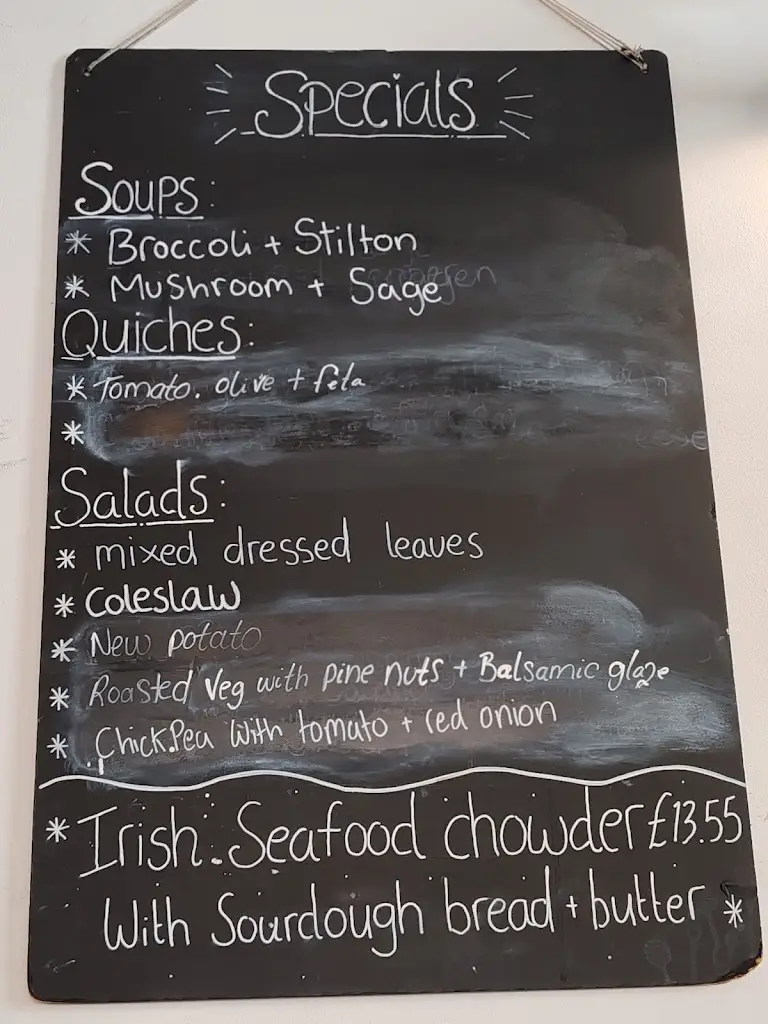 Specials
Soups:
* Broccoli + Stilton
* Mushroom + Sage
Quiches:
* Tomato. olive + feta
*
Salads:
* mixed dressed leaves
* Coleslaw
* New potato
* Roasted Veg with pine nuts + Balsamic glaze
* Chick.Pea With tomato + red onion
* Irish.Seafood chowder £13.55
With Sourdough bread + butter *